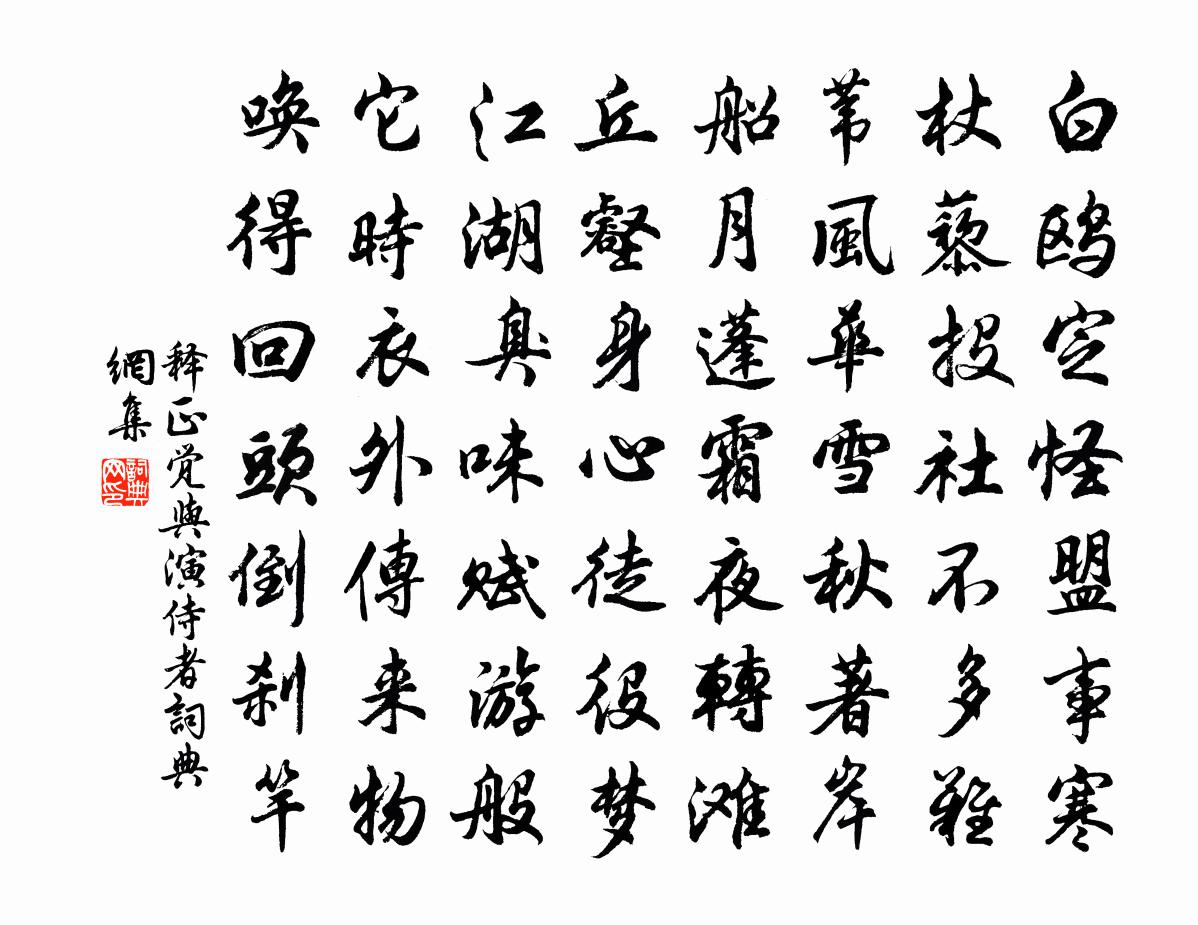 白鸥定怪盟事寒
杖藜投社不多難
苇風華雪秋著岸
船月蓬霜夜轉滩
丘壑身心徒役梦
江湖臭味赋游般
它時衣外傳来物
唤得回頭倒刹竿
释正觉與演侍者詞典
網集
詞典
网印